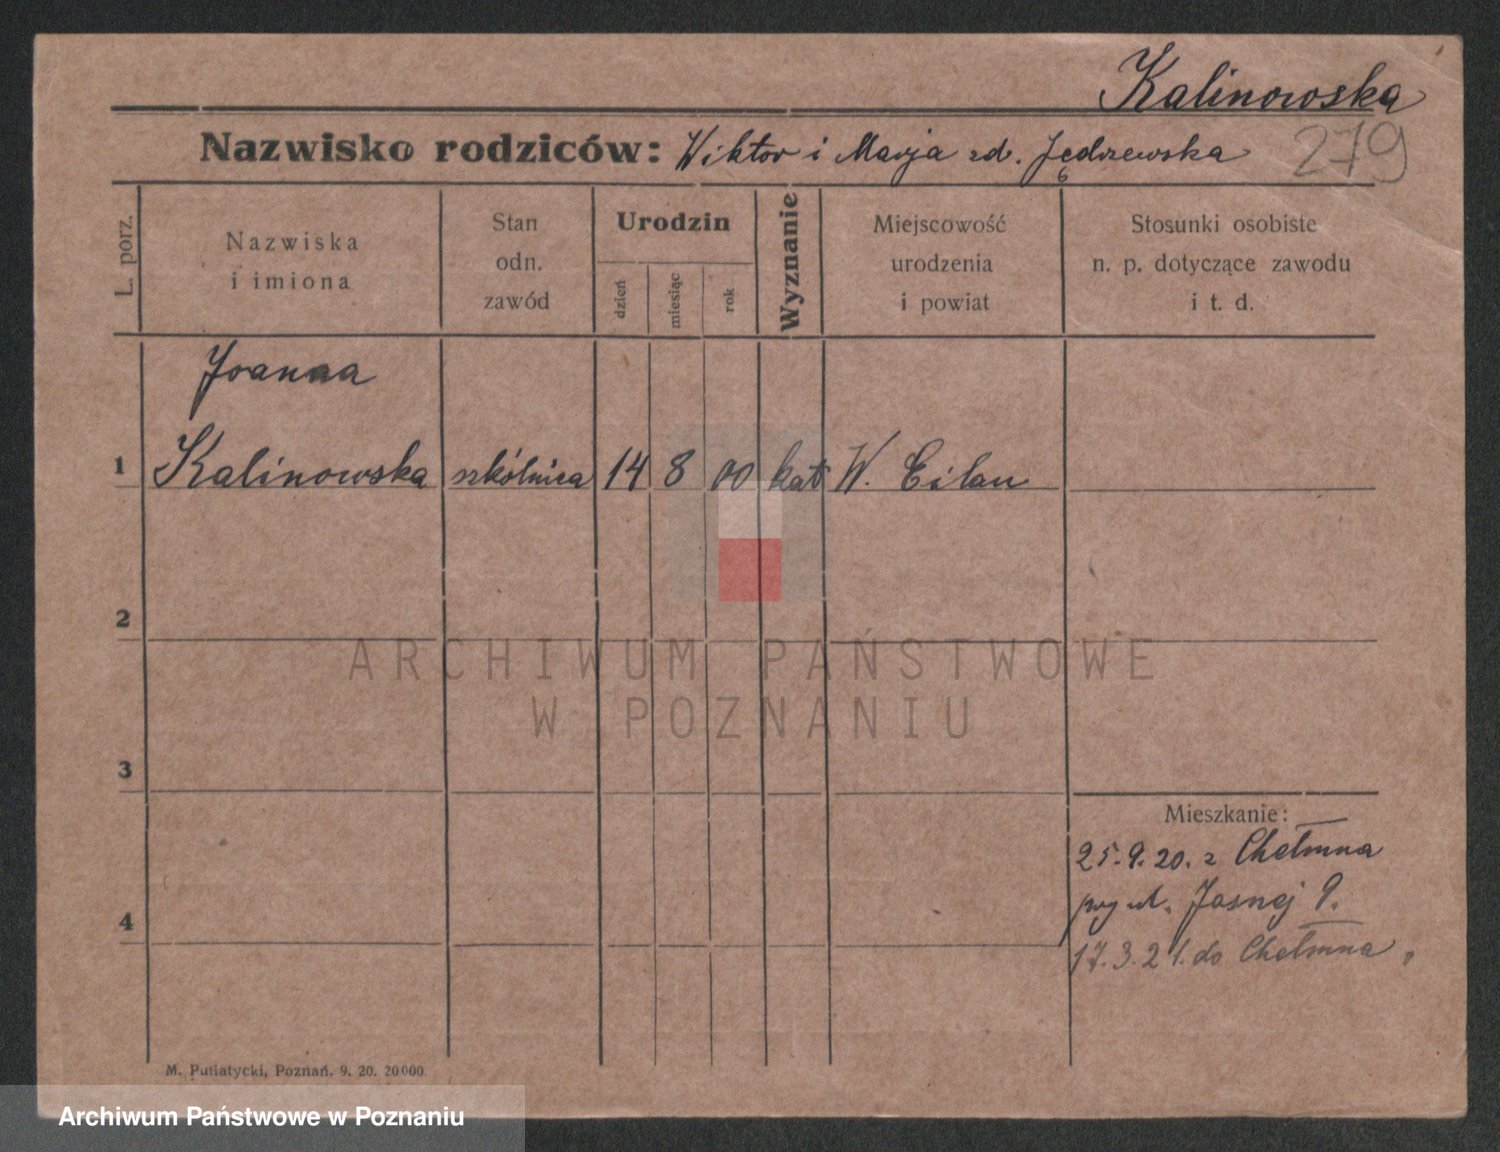 Kalinowska
Nazwisko rodziców: Wiktor i Marja zd. Jędrzewska
279
L. porz.
Nazwiska
i imiona
Stan
odn.
zawód
Urodzin
dzień
miesiąc
rok
Wyznanie
Miejscowość
urodzenia
i powiat
Stosunki osobiste
n. p. dotyczące zawodu
i t. d.
Joanna
1 Kalinowska szkólnica 14 8 00 kat W. Eilau
2
ARCHIWUM PAŃSTWOWE
W POZNANIU
3
Mieszkanie:
25.9.20. z Chełmna
4
przy ul. Jasnej 9.
17.3.21. do Chełmna,
M. Putiatycki, Poznań. 9. 20. 20000.
Archiwum Państwowe w Poznaniu